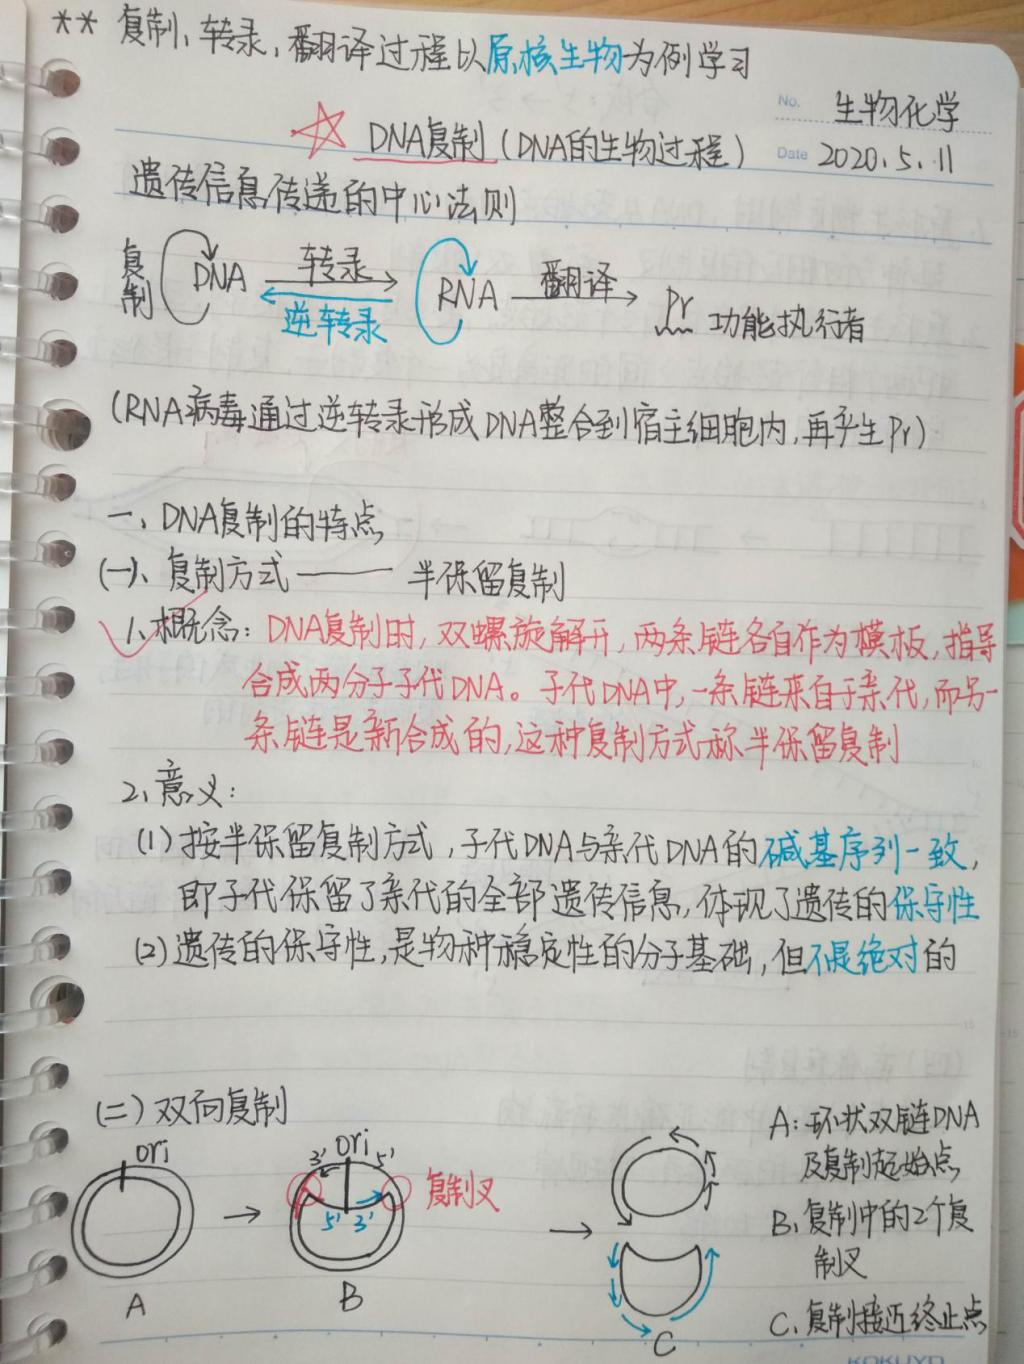 ** 复制、转录、翻译过程以原核生物为例学习
No. 生物化学
☆ DNA复制（DNA的生物过程）
Date 2020.5.11
遗传信息传递的中心法则
复制 DNA 转录 RNA 翻译 Pr 功能执行者
逆转录
(RNA病毒通过逆转录形成DNA整合到宿主细胞内,再产生Pr)
一、DNA复制的特点
(一)、复制方式——半保留复制
1、概念：DNA复制时,双螺旋解开,两条链各自作为模板,指导
合成两分子子代DNA。子代DNA中,一条链来自于亲代,而另一
条链是新合成的,这种复制方式称半保留复制
2、意义：
(1)按半保留复制方式,子代DNA与亲代DNA的碱基序列一致,
即子代保留了亲代的全部遗传信息,体现了遗传的保守性
(2)遗传的保守性,是物种稳定性的分子基础,但不是绝对的
(二)双向复制
ori
ori
3' 5'
5' 3'
复制叉
A
B
C
A：环状双链DNA
及复制起始点
B、复制中的2个复
制叉
C、复制接近终止点
KOKUYO